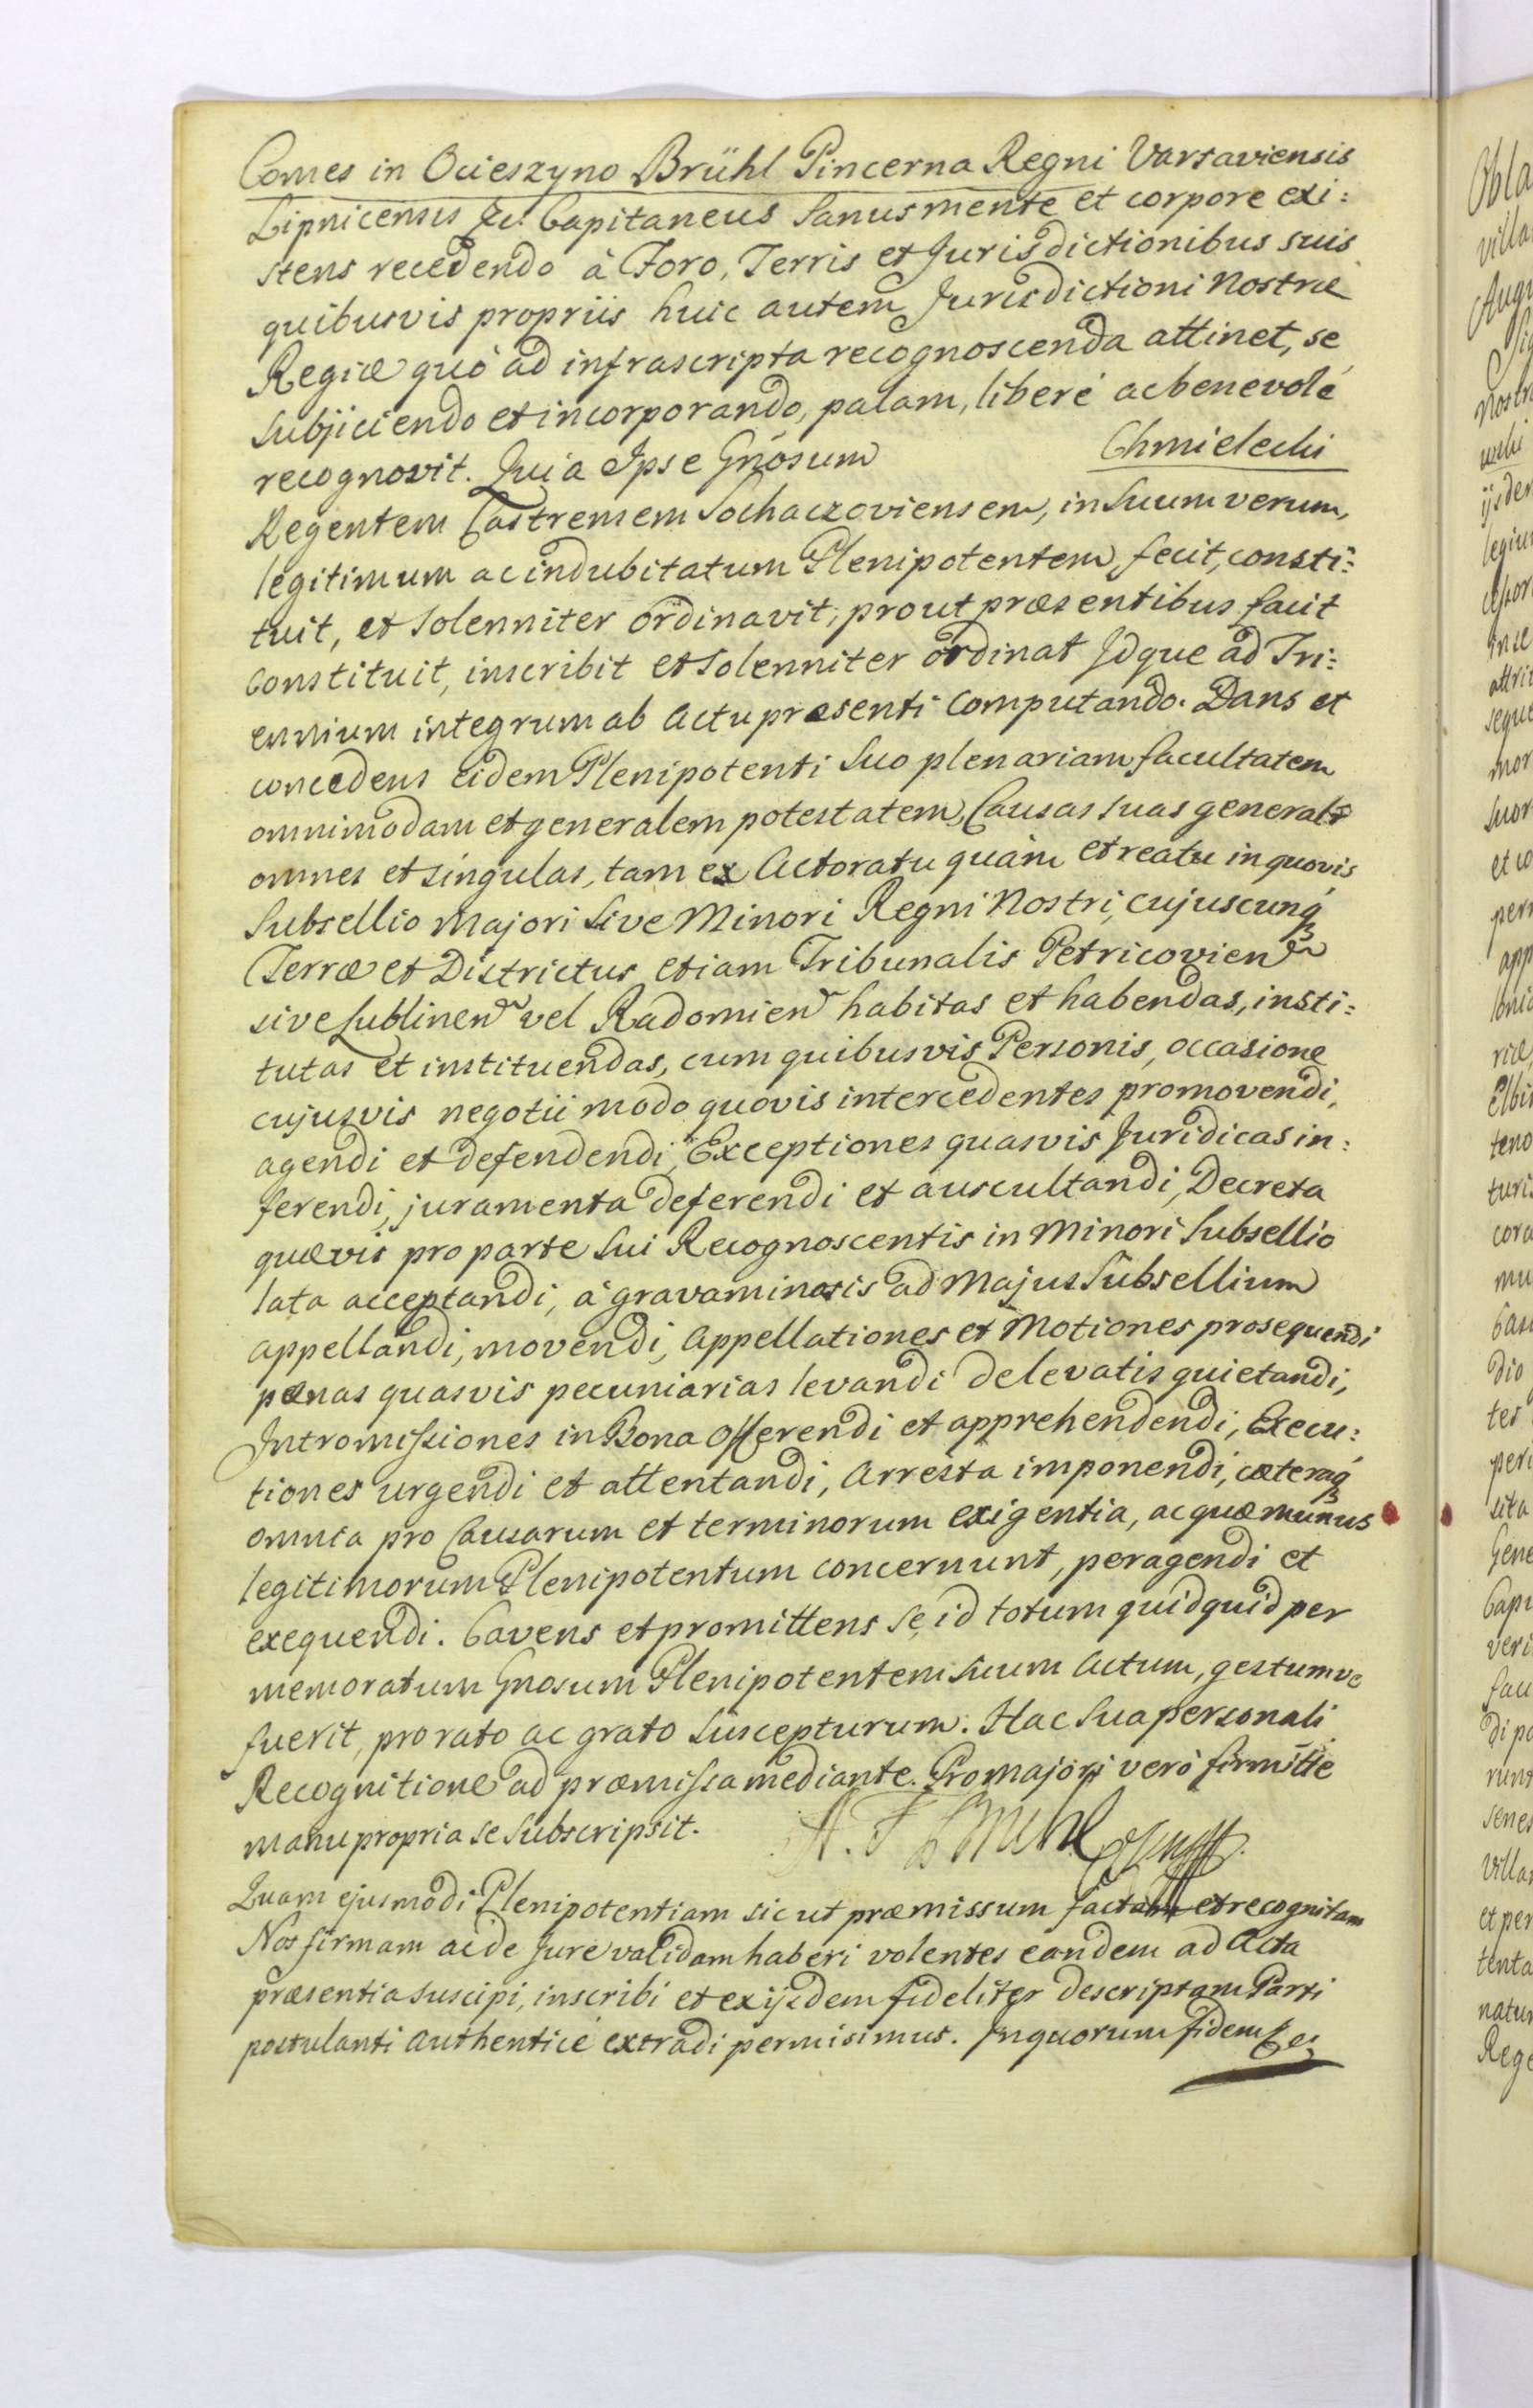 Comes in Ocieszyno Brühl Pincerna Regni Varsaviensis
Lipnicensis &c. Capitaneus Sanus mente et corpore exi:
stens recedendo à Foro, Terris et Jurisdictionibus suis
quibusvis propriis huic autem Jurisdictioni Nostræ
Regiæ quò ad infrascripta recognoscenda attinet, se
subjiciendo et incorporando, palam, liberé ac benevolé
recognovit. Quia Ipse Gnosum Chmielecki
Regentem Castrensem Sochaczoviensem, in Suum verum,
legitimum ac indubitatum Plenipotentem, fecit, consti:
tuit, et Solenniter ordinavit, prout præsentibus facit
constituit, inscribit et Solenniter ordinat Idque ad Tri:
ennium integrum ab Actu præsenti Computando. Dans et
concedens eidem Plenipotenti Suo plenariam facultatem
omnimodam et generalem potestatem, Causas suas generalr
omnes et singulas, tam ex Actoratu quàm et reatu in quovis
Subsellio Majori sive Minori Regni Nostri, cujuscunq
Terræ et Districtus etiam Tribunalis Petricovien
sive Lublinen vel Radomien habitas et habendas, insti:
tutas et instituendas, cum quibusvis Personis, occasione
cujusvis negotii modo quovis intercedentes promovendi,
agendi et defendendi, Exceptiones quasvis Juridicas in:
ferendi, juramenta deferendi et auscultandi, Decreta
quævis pro parte Sui Recognoscentis in Minori Subsellio
lata acceptandi, à gravaminosis ad Majus Subsellium
appellandi, movendi, Appellationes et Motiones prosequendi
pænas quasvis pecuniarias levandi de levatis quietandi,
Intromissiones in Bona Offerendi et apprehendendi, Execu:
tiones urgendi et attentandi, Arresta imponendi, cæteraq
omnia pro Causarum et terminorum exigentia, ac quæ munus
legitimorum Plenipotentum concernunt, peragendi et
exequendi. Cavens et promittens Se, id totum quidquid per
memoratum Gnosum Plenipotentem Suum Actum, gestumve
fuerit, pro rato ac grato suscepturum. Hac Sua personali
Recognitione ad præmissa mediante. Pro majori verò firmitte
manu propria se Subscripsit. A. F Bruhl
Quam ejusmodi Plenipotentiam sic ut præmissum factam et recognitam
Nos firmam ac de Jure validam haberi volentes eandem ad Acta
præsentia suscipi, inscribi et ex ijsdem fideliter descriptam Parti
postulanti authenticé extradi permisimus. In quorum fidem &c